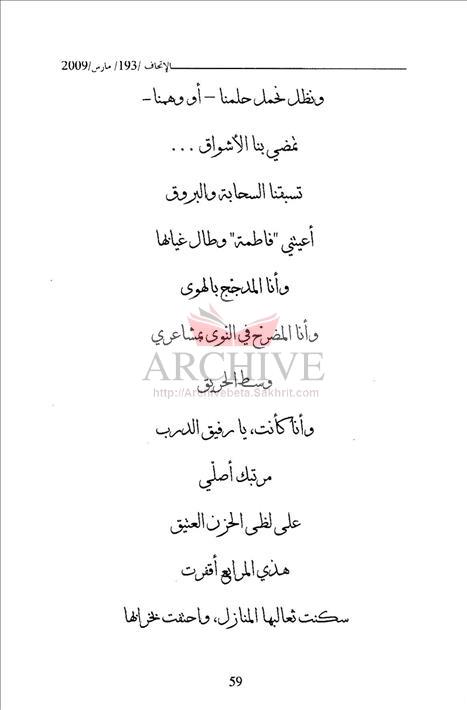 الإتحاف /193/ مارس/2009
ونظل نحمل حلمنا – أو وهمنا –
تمضي بنا الأشواق ...
تسبقنا السحابة والبروق
أعيتني "فاطمة" وطال غيابها
وأنا المدجج بالهوى
وأنا المضرج في النوى بمشاعري
ARCHIVE
وسط الحريق
http://Archivebeta.Sakhrit.com
وأنا كأنت، يا رفيق الدرب
مرتبك أصلّي
على لظى الحزن العتيق
هذي المرابع أقفرت
سكنت ثعالبها المنازل، واحتفت بخرابها
59